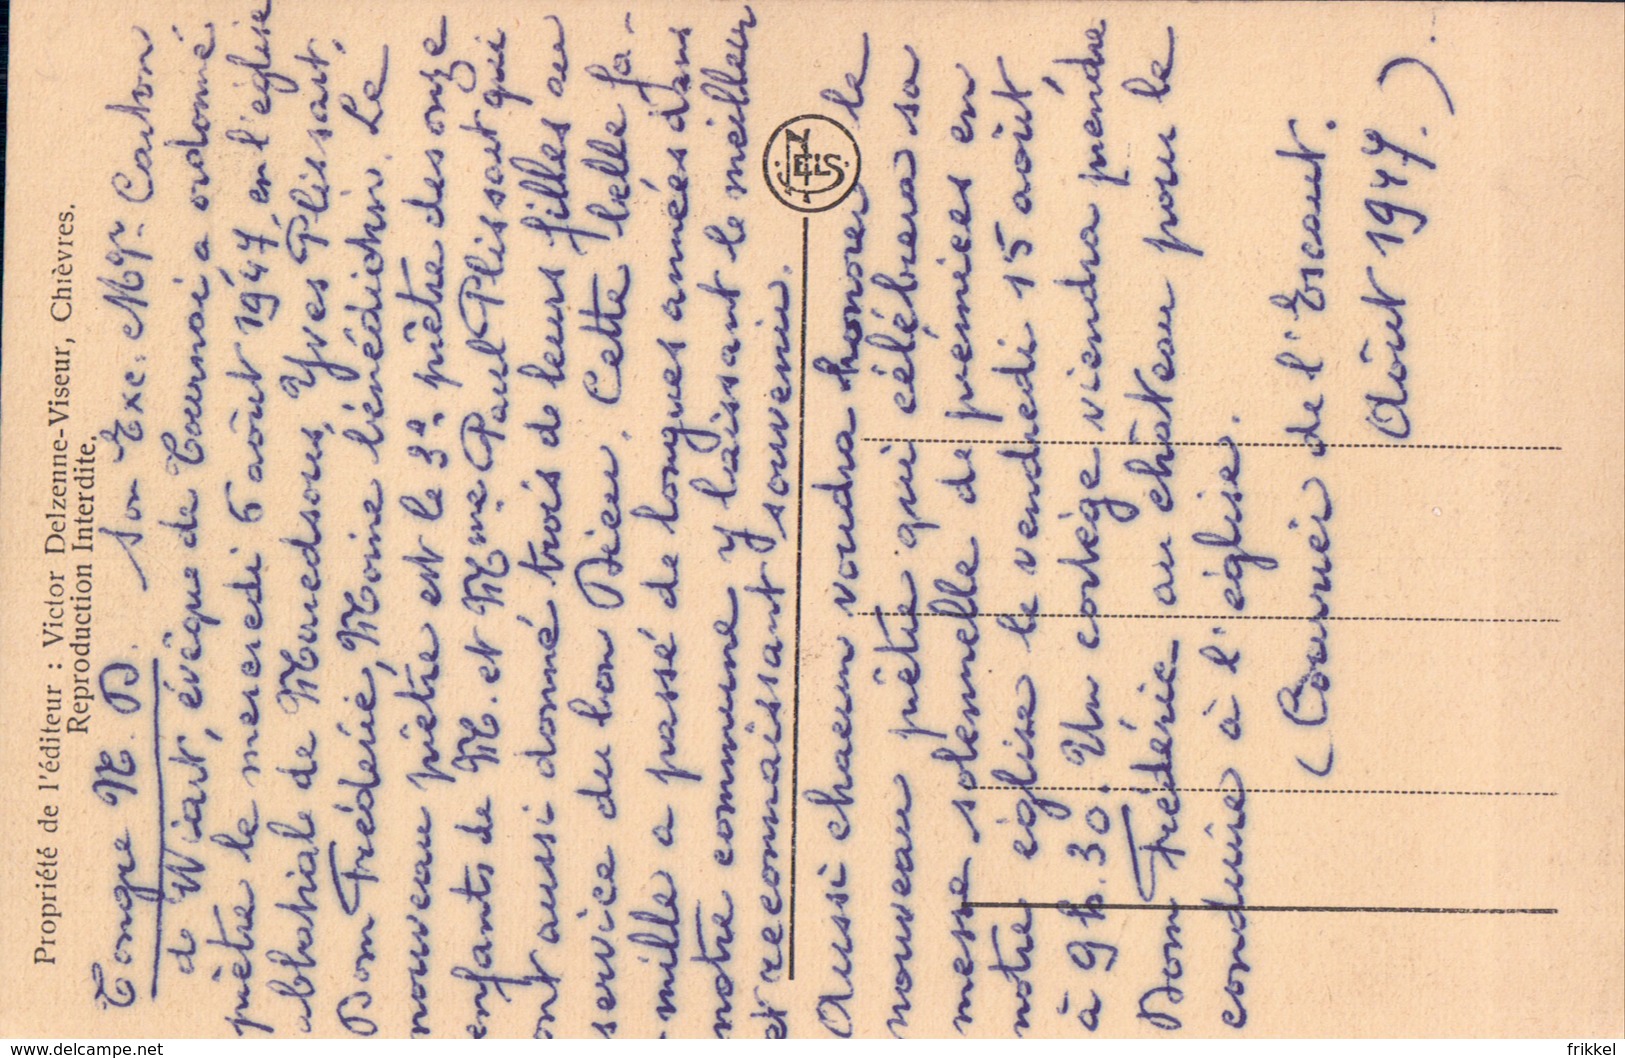 Propriété de l'éditeur : Victor Delzenne-Viseur, Chièvres.
Reproduction Interdite.
Tongre N. D. Son Exc. Mgr. Carton
de Wiart, évêque de Tournai a ordonné
prêtre le mercredi 6 août 1947 en l'église
abbatiale de Maredsous, Yves Plissart,
Dom Frédéric, Moine bénédictin. Le
nouveau prêtre est le 3e prêtre des onze
enfants de M. et Mme Paul Plissart qui
ont aussi donné trois de leurs filles au
service du bon Dieu. Cette belle fa-
-mille a passé de longues années dans
notre commune y laissant le meilleur
et reconnaissant souvenir.
Aussi chacun voudra honorer le
nouveau prêtre qui célébrera sa
messe solennelle de prémices en
notre église le vendredi 15 août
à 9 h. 30. Un cortège viendra prendre
Dom Frédéric au château pour le
conduire à l'église.
(Courrier de l'Escaut.
Août 1947.)
JELS
www.delcampe.net
frikkel